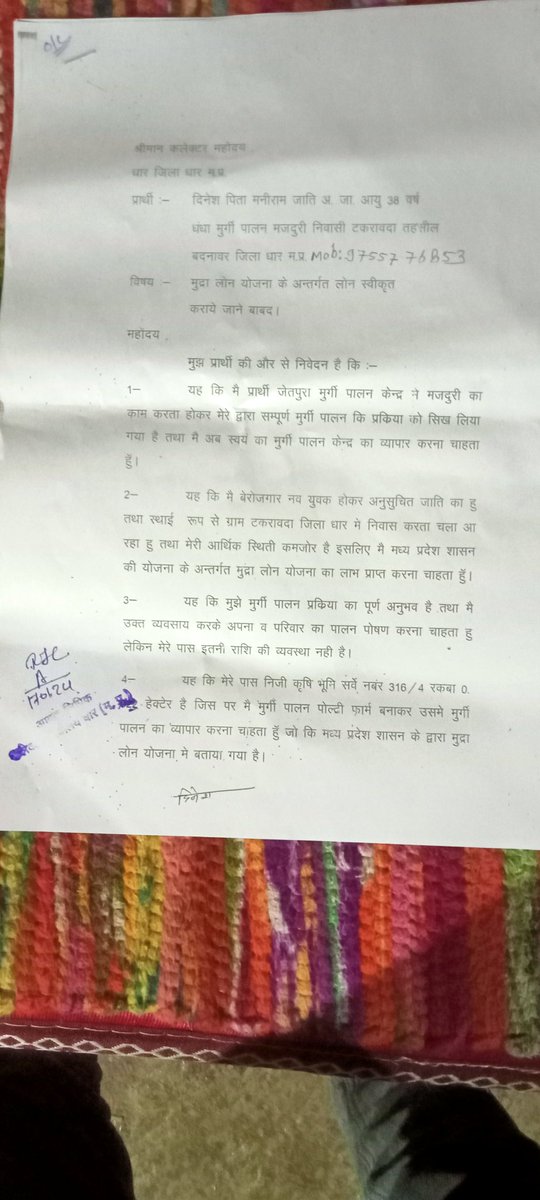 श्रीमान कलेक्टर महोदय
धार जिला धार म.प्र.
प्रार्थी :– दिनेश पिता मनीराम जाति अ. जा. आयु 38 वर्ष
धंधा मुर्गी पालन मजदुरी निवासी टकरावदा तहसील
बदनावर जिला धार म.प्र. Mob:
विषय – मुद्रा लोन योजना के अन्तर्गत लोन स्वीकृत
कराये जाने बाबद।
महोंदय
मुझ प्रार्थी की और से निवेदन है कि :–
1– यह कि मै प्रार्थी जेतपुरा मुर्गी पालन केन्द्र ने मजदुरी का
काम करता होकर मेरे द्वारा सम्पूर्ण मुर्गी पालन कि प्रकिया को सिख लिया
गया है तथा मै अब स्वयं का मुर्गी पालन केन्द्र का व्यापार करना चाहता
हूॅ।
2– यह कि मै बेरोजगार नव युवक होकर अनुसुचित जाति का हु
तथा स्थाई रूप से ग्राम टकरावदा जिला धार मे निवास करता चला आ
रहा हु तथा मेरी आर्थिक स्थिती कमजोर है इसलिए मै मध्य प्रदेश शासन
की योजना के अन्तर्गत मुद्रा लोन योजना का लाभ प्राप्त करना चाहता हूॅ।
3– यह कि मुझे मुर्गी पालन प्रकिया का पूर्ण अनुभव है तथा मै
उक्त व्यवसाय करके अपना व परिवार का पालन पोषण करना चाहता हु
लेकिन मेरे पास इतनी राशि की व्यवस्था नही है।
4– यह कि मेरे पास निजी कृषि भूनि सर्वे नबंर 316/4 रकबा 0.
हेक्टेर है जिस पर मै मुर्गी पालन पोल्टी फार्म बनाकर उसमे मुर्गी
पालन का व्यापार करना चाहता हूॅ जो कि मध्य प्रदेश शासन के द्वारा मुद्रा
लोन योजना मे बताया गया है।
दिनेश